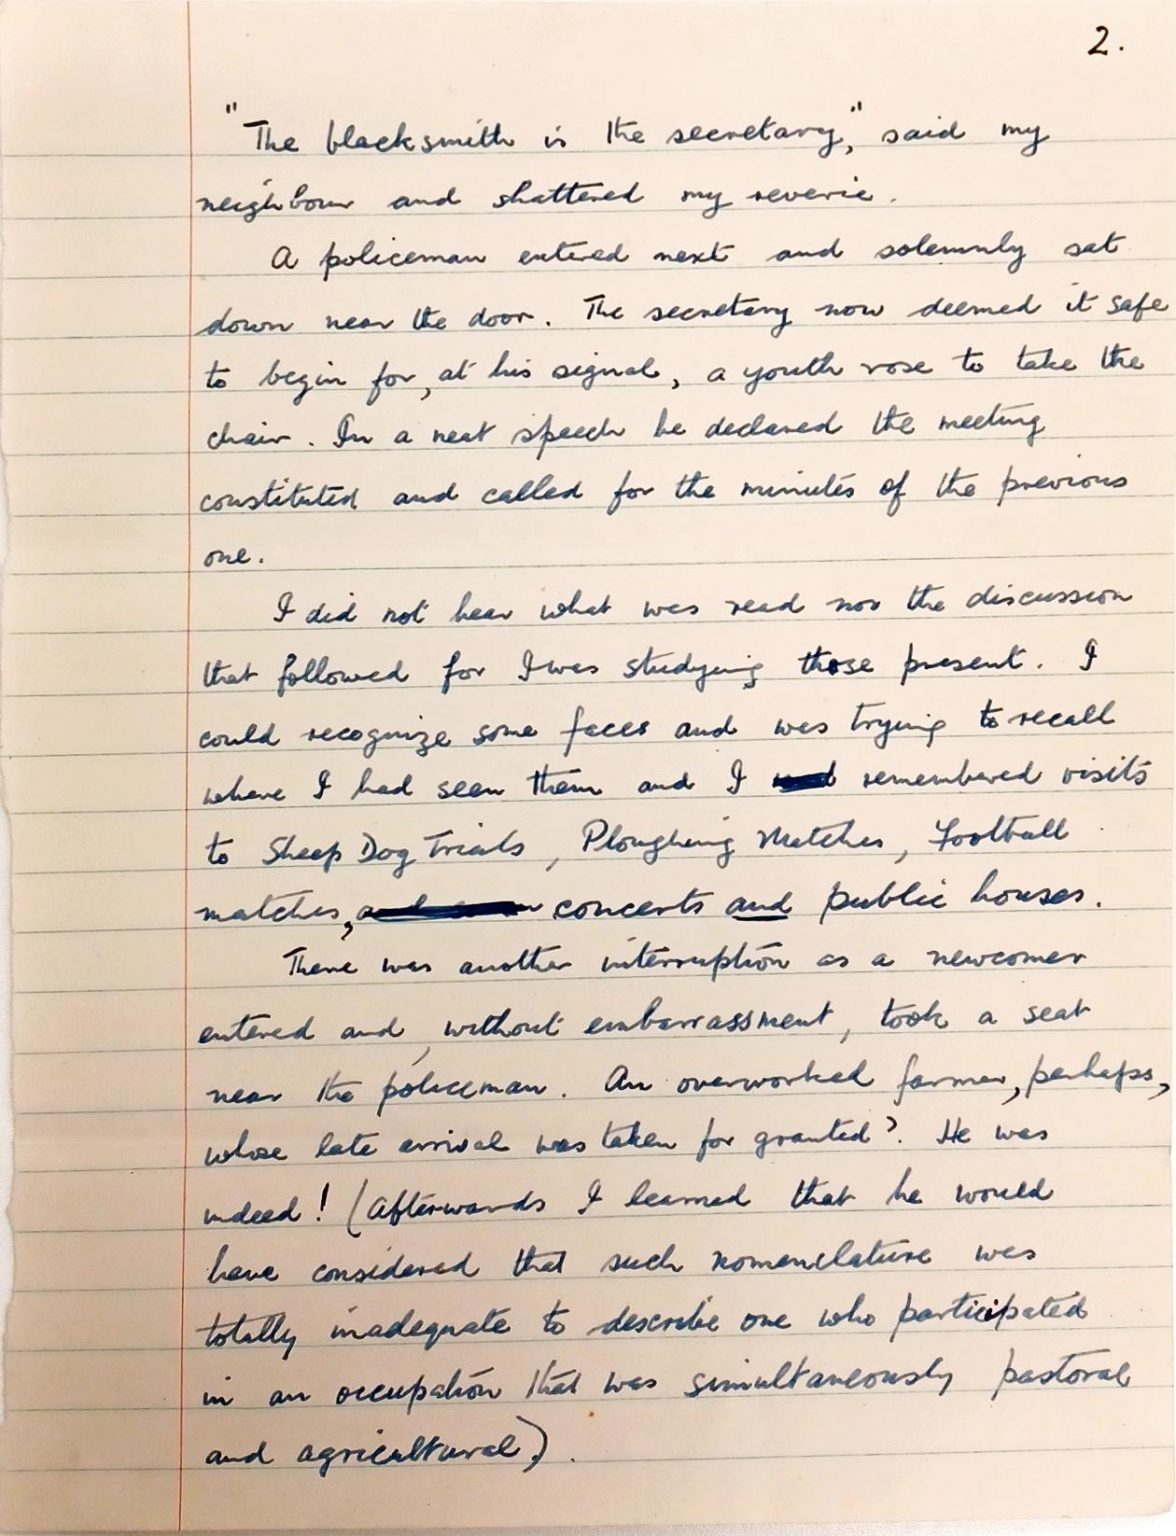 2.
"The blacksmith is the secretary," said my
neighbour and shattered my reverie.
A policeman entered next and solemnly sat
down near the door. The secretary now deemed it safe
to begin for, at his signal, a youth rose to take the
chair. In a neat speech he declared the meeting
constituted and called for the minutes of the previous
one.
I did not hear what was read nor the discussion
that followed for I was studying those present. I
could recognize some faces and was trying to recall
where I had seen them and I remembered visits
to Sheep Dog Trials, Ploughing Matches, Football
matches, concerts and public houses.
There was another interruption as a newcomer
entered and, without embarrassment, took a seat
near the policeman. An overworked farmer, perhaps,
whose late arrival was taken for granted? He was
indeed! (Afterwards I learned that he would
have considered that such nomenclature was
totally inadequate to describe one who participated
in an occupation that was simultaneously pastoral
and agricultural).